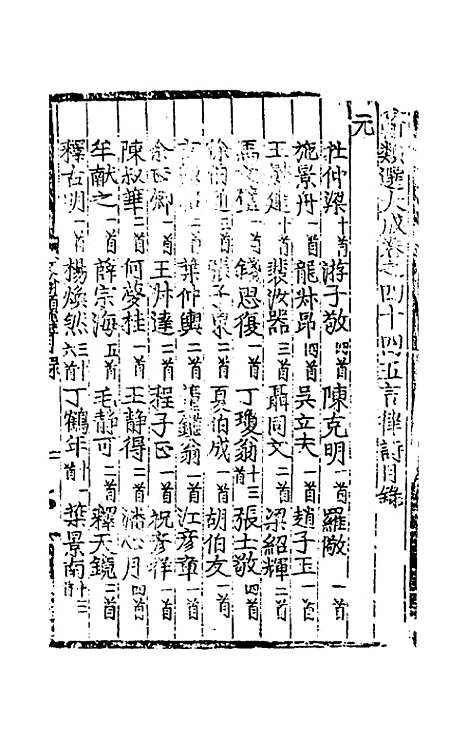 詩類選大成卷之四十四五言律詩目錄
元
杜仲梁十首 游子敬四首 陳克明一首 羅敞一首
施景丹一首 龍州昂四首 吳立夫一首 趙子玉一首
王 三首 裴汝器三首 聶同文二首 梁紹輝二首
馬 一首 錢思復一首 丁瓊翁十三首 張士敬四首
徐伯通三首 張子 二首 夏伯成一首 胡伯友一首
二首 葉仲輿二首 翁一首 江彥章一首
余 卿一首 王叔達二首 程子正一首 祝彥祥一首
陳叔華二首 何夢桂一首 王靜得二首 潘心月四首
牟献之一首 薛宗海五首 毛靜可二首 釋天鏡三首
釋古明一首 楊煥然六首 丁鶴年 首 葉景南 首